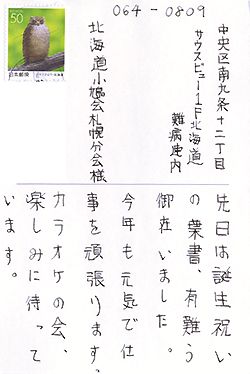 064-0809
中央区南九条十二丁目
サウスビュー1F北海道
難病連内
北海道小鳩会札幌分会様
50
日本郵便
先日は誕生祝い
の葉書、有難う
御在いました。
今年も元気で仕
事を頑張ります。
カラオケの会、
楽しみに待って
います。